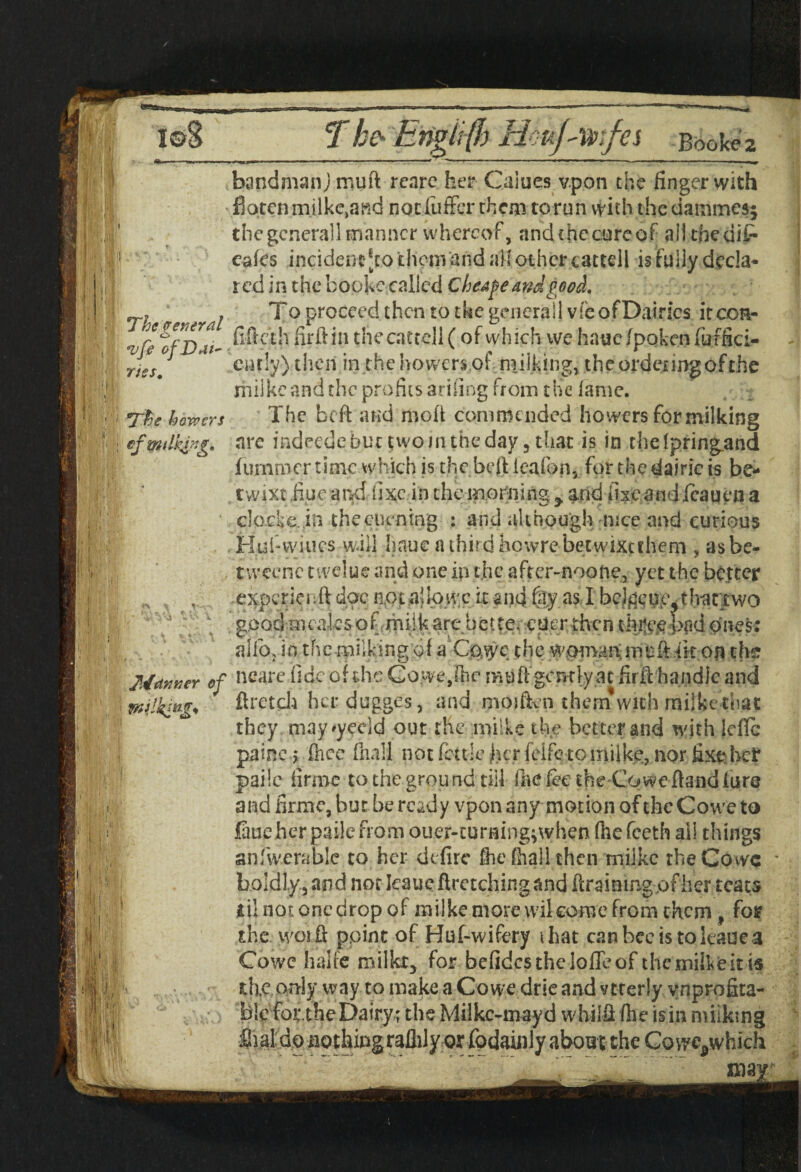 108 The English Hous-wifes Booke 2
bandman) must reare her Calues vpon the finger with
floten milke, and not suffer them to run with the dammes;
the generall manner whereof, and the cure of all the dis-
eases incident to them and all other cattell is fully decla-
red in the booke called Cheape and good.
The generall vse of Dai-ries.
To proceed then to the generall vse of Dairies it con-
sisteth first in the cattell (of which we haue spoken suffici-
ently) then in the howers of milking, the ordering of the
milke and the profits arising from the same.
The howers of milking.
The best and most commended howers for milking
are indeede but two in the day, that is in the spring and
summer time which is the best season, for the dairie is be-
twixt fiue and sixe in the morning, and sixe and seauen a
clocke in the euening : and although nice and curious
Hus-wiues will haue a third howre betwixt them, as be-
tweene twelue and one in the after-noone, yet the better
experienst doe not allowe it and say as I beleeue, that two
good meales of milk are better euer then three bad ones:
also, in the milking of a Cowe the woman must sit on the
Manner of milking.
neare side of the Cowe, she must gently at first handle and
stretch her dugges, and moisten them with milke that
they may yeeld out the milke the better and with lesse
paine; shee shall not settle her selfe to milke, nor fixe her
paile firme to the ground till she see the Cowe stand sure
and firme, but be ready vpon any motion of the Cowe to
saue her paile from ouer-turning; when she seeth all things
answerable to her desire she shall then milke the Cowe
boldly, and not leaue stretching and straining of her teats
til not one drop of milke more wil come from them, for
the worst point of Hus-wifery that can bee is to leaue a
Cowe halfe milkt, for besides the losse of the milke it is
the only way to make a Cowe drie and vtterly vnprofita-
ble for the Dairy: the Milke-mayd whilst she is in milking
shal do nothing rashly or sodainly about the Cowe, which
may